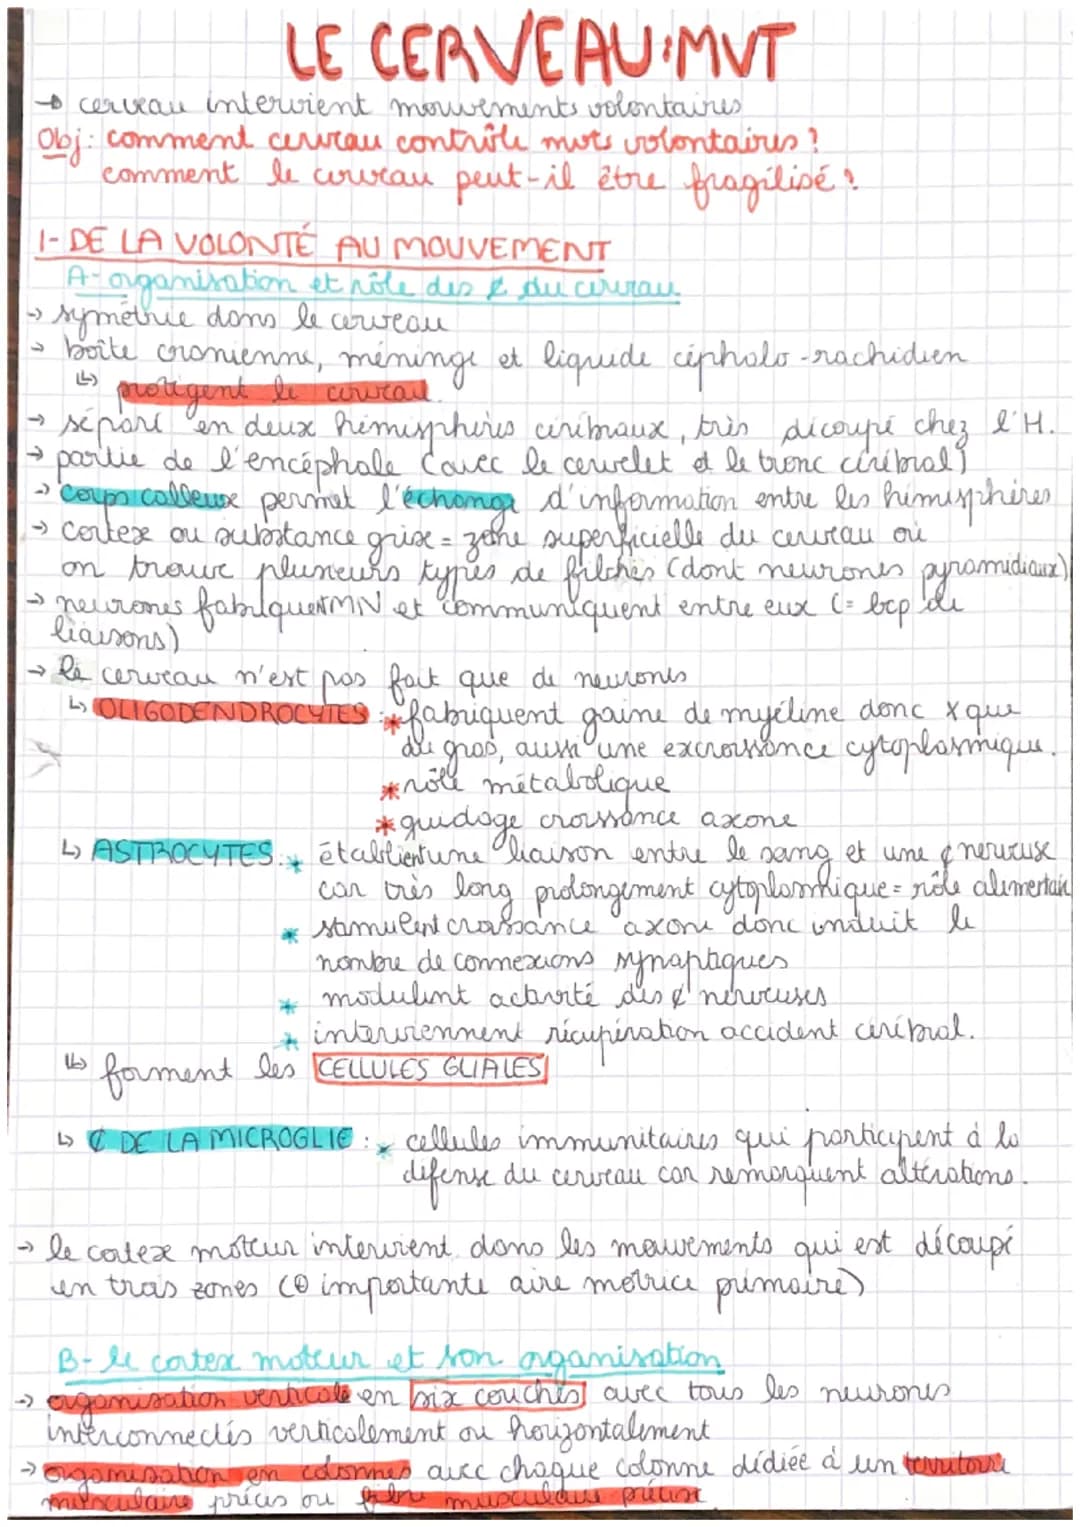 LE CERVEAU: MVT
→ cerveau intervient mouvements volontaires
Obj: comment cerveau contrôle mvts volontaires?
comment le cerveau peut-il être fragilisé?
1- DE LA VOLONTÉ AU MOUVEMENT
A- organisation et rôle des ¢ du cerveau
→ symétrie dans le cerveau
→ boîte cranienne, méninge et liquide céphalo-rachidien
↳ protègent le cerveau.
→ séparé en deux hémisphères cérébraux, très découpé chez l'H.
→ partie de l'encéphale (avec le cervelet et le tronc cérébral)
→ corps calleux permet l'échange d'information entre les hémisphères
→ cortex ou substance grise = zone superficielle du cerveau où
on trouve plusieurs types de (dont neurones pyramidaux)
→ neurones fabriquent MN et communiquent entre eux (= bcp de
liaisons)
→ le cerveau n'est pas fait que de neurones
↳ OLIGODENDROCYTES : * fabriquent gaine de myéline donc x que
du gras, aussi une excroissance cytoplasmique.
* rôle métabolique
* guidage croissance axone
↳ ASTROCYTES: * établient une liaison entre le sang et une ¢ nerveuse
car très long prolongement cytoplasmique = rôle alimentaire
* stimulent croissance axone donc induit le
nombre de connexions synaptiques
* modulent activité des ¢ nerveuses
* interviennent récupération accident cérébral.
↳ forment les CELLULES GLIALES
↳ ¢ DE LA MICROGLIE : * cellules immunitaires qui participent à la
défense du cerveau car remarquent altérations.
→ le cortex moteur intervient dans les mouvements qui est découpé
en trois zones (⊕ importante aire motrice primaire)
B- le cortex moteur et son organisation
→ organisation verticale en six couches avec tous les neurones
interconnectés verticalement ou horizontalement
→ organisation en colonnes avec chaque colonne dédiée à un territoire
musculaire précis ou fibre musculaire précise